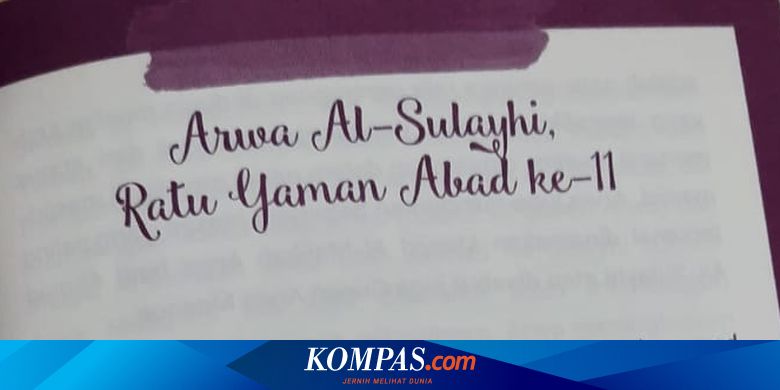 Arwa Al-Sulayhi,
Ratu Yaman Abad ke-11
KOMPAS.com
JERNIH MELIHAT DUNIA